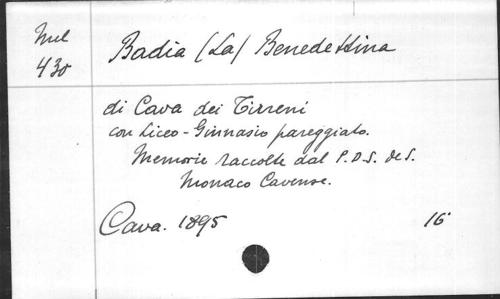 Mel
430
Badia (La) Benedettina
di Cava dei Tirreni
con Liceo-Ginnasio pareggiato.
Memorie raccolte dal P.D.S. de S.
Monaco Cavense.
Cava. 1895
16°